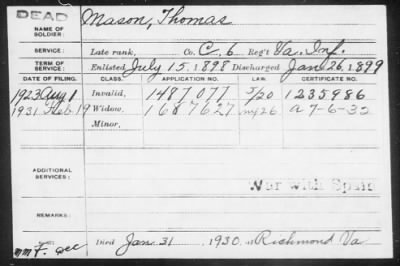 DEAD
NAME OF SOLDIER: Mason, Thomas
SERVICE: Late rank, Co. C. 6 Reg't Va. Inf.
TERM OF SERVICE: Enlisted July 15, 1898 Discharged Jan 26, 1899
DATE OF FILING. CLASS. APPLICATION NO. LAW. CERTIFICATE NO.
1923 Aug 1 Invalid, 1487077 5/20 1235986
1931 Feb 19 Widow, 1687627 my 26 a 7-6-32
Minor,
ADDITIONAL SERVICES:
War with Spain
REMARKS:
Died Jan 31, 1930, at Richmond Va